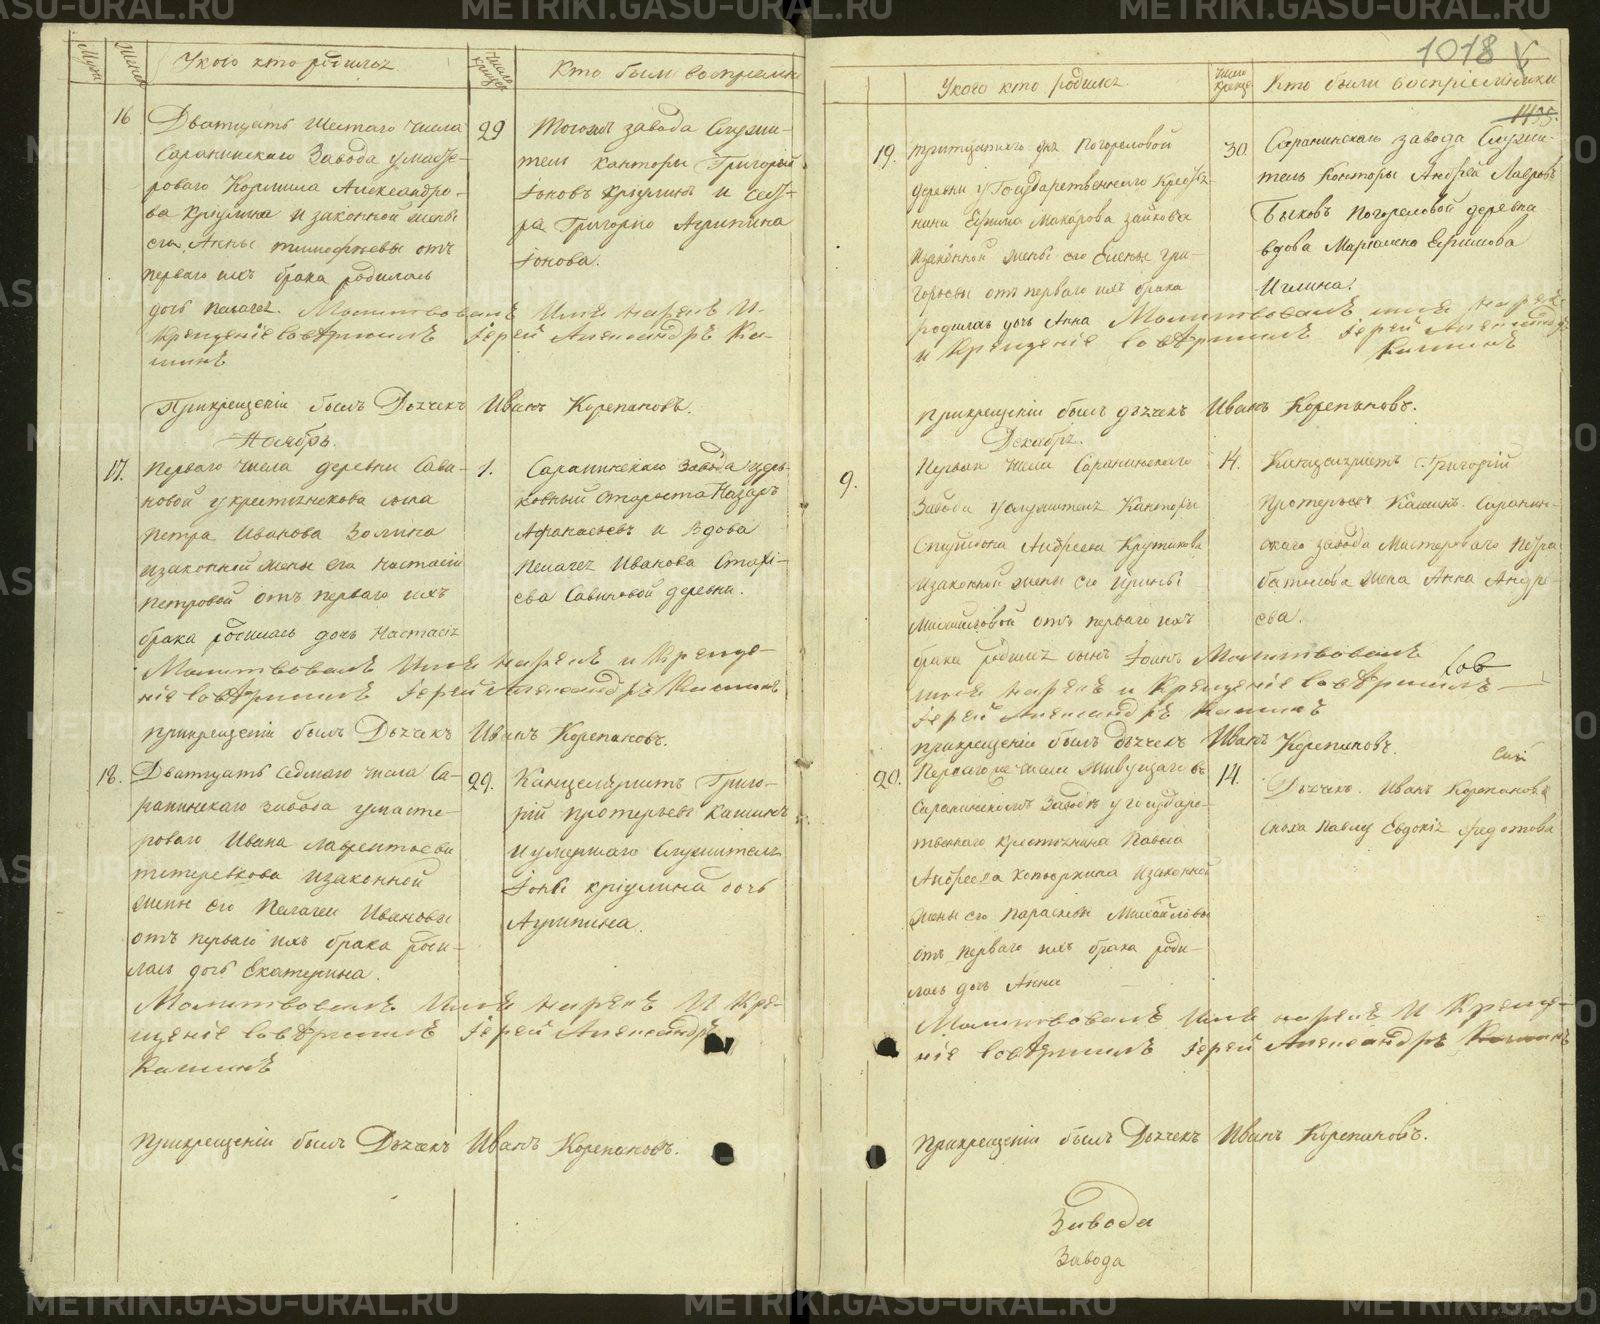 METRIKI.GASU-URAL.RU
Мужи
Жены
У кого кто родился
Число крещ
Кто был воспремн
16
Дватцать шестаго числа
Саранинскаго Завода умасте-
роваго Корнила Александро-
ва Крiулина и законной жены
его Анны тимофѣевы отъ
перваго ихъ брака родилась
дочь Палагея. Молитвовалъ Имя нарѣкъ И
Крещенiе совѣршилъ Iерей Александръ Ка-
шинъ
29
Тогожъ завода Служи-
тель канторы Григорий
Iоновъ Крiулинъ и сест-
ра Григорию Агрипина
Iонова.
Прикрещенiи былъ Дьячекъ Иванъ Корепановъ.
Ноябрь.
17.
Перваго числа деревни Сави-
новой у крестьянскова сына
Петра Иванова Золина
изаконной жены его Настасiи
Петровой отъ перваго ихъ
брака родилась дочь Настасiя
Молитвовалъ Имя нарѣкъ и Креще-
нiе совѣршилъ Iерей Александръ Кашинъ
1.
Саранинскаго Завода церь-
ковный Староста Назаръ
Афанасьевъ и вдова
Пелагея Иванова Стахi-
ева Савиновой деревни.
прикрещенiи былъ Дьячекъ Иванъ Корепановъ.
18.
Дватцать седмаго числа Са-
ранинскаго завода умасте-
роваго Ивана Лаврентьева
тетеревкова изаконной
жены его Пелагеи Ивановы
отъ перваго ихъ брака роди-
лась дочь Екатерина.
Молитвовалъ Имя нарѣкъ И Кре-
щенiе совѣршилъ Iерей Александръ
Кашинъ
29.
Канцеляристъ Григо-
рiй протерьевъ Кашинъ
и умершаго Служителя
Iоны крiулина дочь
Агрипина.
Прикрещенiи былъ Дьячекъ Иванъ Корепановъ.
1018
1135.
У кого кто родился
Число Крещ
Кто были воспрiемники
19.
тритцатаго дня Погореловой
деревни у Государственнаго Кресья-
нина Ефима Макарова зайкова
изаконной жены его Елены Гри-
горьевы отъ перваго ихъ брака
родилась дочь Анна Молитвовалъ имя нарѣкъ
и Крещенiе совѣршилъ Iерей Александръ
Кашинъ
30
Саранинскаго завода Служи-
тель Канторы Андрей Лавровъ
Быковъ Погореловой деревни
вдова Марiамна Ефимова
Иглина.
прикрещенiи былъ дьячекъ Иванъ Корепановъ.
Декабрь.
9.
Первая числа Саранинскаго
Завода услужителя Канторы
Спиридона Андреева Крутикова
изаконной жены его Ирины
Михаиловой отъ перваго ихъ
брака родился сынъ Iоанъ Молитвовалъ
имя нарѣкъ и Крещенiе совѣршилъ
Iерей Александръ Кашинъ
14.
Канцеляристъ Григорiй
Протерьевъ Кашинъ. Саранин-
скаго завода Мастероваго Петра
батылова жена Анна Андре-
ева.
сов
прикрещенiе былъ дьячекъ Иванъ Корепановъ.
20.
Перваго числа живущаго въ
Саранинскомъ Заводѣ у государс-
твеннаго крестьянина Павла
Андреева Копыркина изаконной
жены его Парасковьи Михайловы
отъ перваго ихъ брака роди-
лась дочь Анна
Молитвовалъ Имя нарѣкъ И Креще-
нiе совѣршилъ Iерей Александръ Кашинъ
14.
Дьячекъ. Иванъ Корепановъ
сноха Павлу Евдокiя Федотова
Прикрещенiи былъ Дьячекъ Иванъ Корепановъ.
Завода
Завода